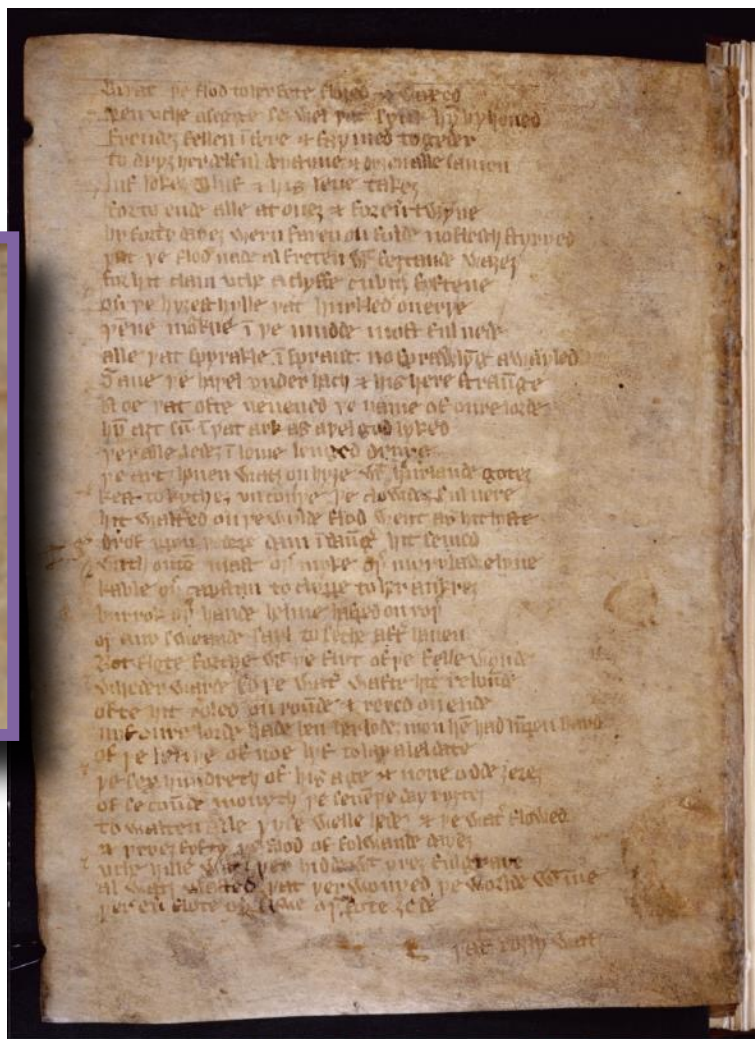 Bi þat þe flod to her fete floȝed & waxed
þen vche a segge seȝ wel þat synk hȳ byhoued
frendez fellen ī fere & faþmed togeder
to dryȝ her delful & dyȝen alle samen
luf lokez to luf & his leue takez
for to ende alle at onez & for eu̾ twynne
by forty dayez wern faren on folde no flesch styryed
þat þe flod nade al freten wᵗ feȝtande waȝez
for hit clam vche a clyffe cubitez fyftene
ou̾ þe hyȝest hylle þat hurkled on erþe
þēne mōkne ī þe mudde most ful nede
alle þat spyrakle ī spranc no sprawlȳg awayled
saue þe haþel vnder hach & his here straūge
Noe þat ofte neuened þe name of oure lorde
hȳ aȝt sū ī þat ark as aþel god lyked
þer alle ledez ī lome lenged druye
þe arc houen watz on hyȝe wᵗ hurlande gotez
kest to kythez vncouþe þe clowdez ful nere
hit walt̾ed on þe wylde flod went as hit lyste
drof vpon þe depe dam ī daūg̾ hit semed
with outē mast oþ̾ myke oþ̾ myry bawelyne
kable oþ̾ capstan to clyppe to her ankrez
hurrok oþ̾ hande helme hasped on roþ̾
oþ̾ any sweande sayl to seche aft̾ hauen
Bot flote forthe wᵗ þe flyt of þe felle wyndez
wheder warde so þe wat̾ wafte hit reboūde
ofte hit roled on roūde & rered on ende
nyf oure lorde hade ben her lodez mon hē had lūpen harde
of þe lenþe of noe lyf to lay a lel date
þe sex hundreth of his age & none odde ȝerez
of secoūde monyth þe day ryȝtez
to walten alle þyse welle hedez & þe wat̾ flowed
& þryez fyfty þe flod of folwande dayez
vche hille watz þer hidde wᵗ yþez ful graye
al watz wasted þat þer wonyed þe worlde wᵗīne
þer eu̾ flote oþ̾ flwe oþ̾ on fote ȝede
þat roȝly watz